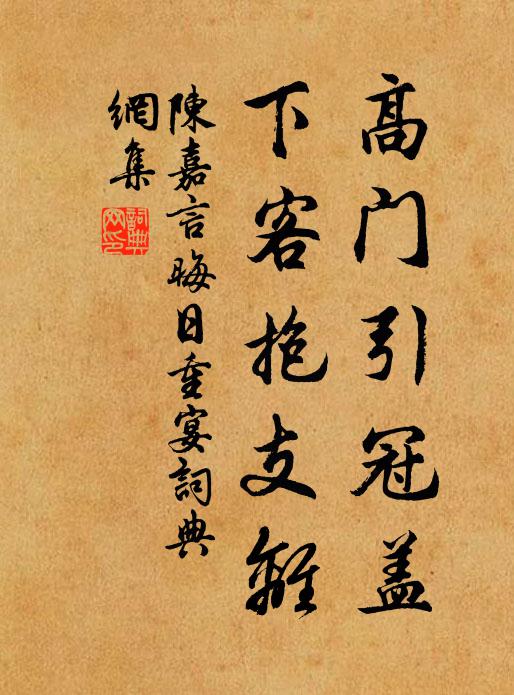 高门引冠盖
下客抱支離
陳嘉言晦日重宴詞典
網集
詞典
网印